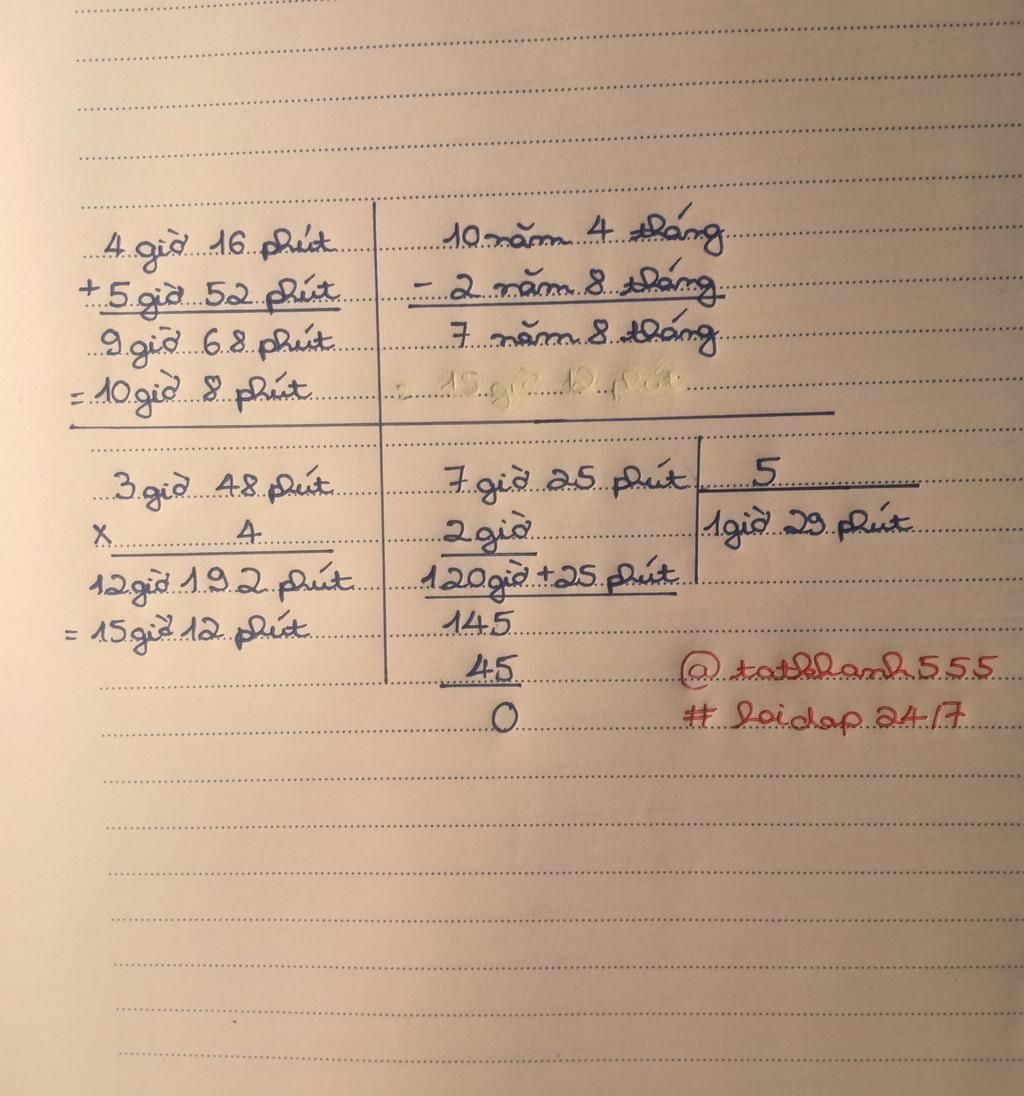 4 giờ 16 phút
+ 5 giờ 52 phút
9 giờ 68 phút
= 10 giờ 8 phút
10 năm 4 tháng
- 2 năm 8 tháng
7 năm 8 tháng
= 15 giờ 12 phút
3 giờ 48 phút
x 4
12 giờ 192 phút
= 15 giờ 12 phút
7 giờ 25 phút 5
2 giờ 1 giờ 29 phút
120 giờ + 25 phút
145
45
0
@ tathhanh555
# hoidap 24/7